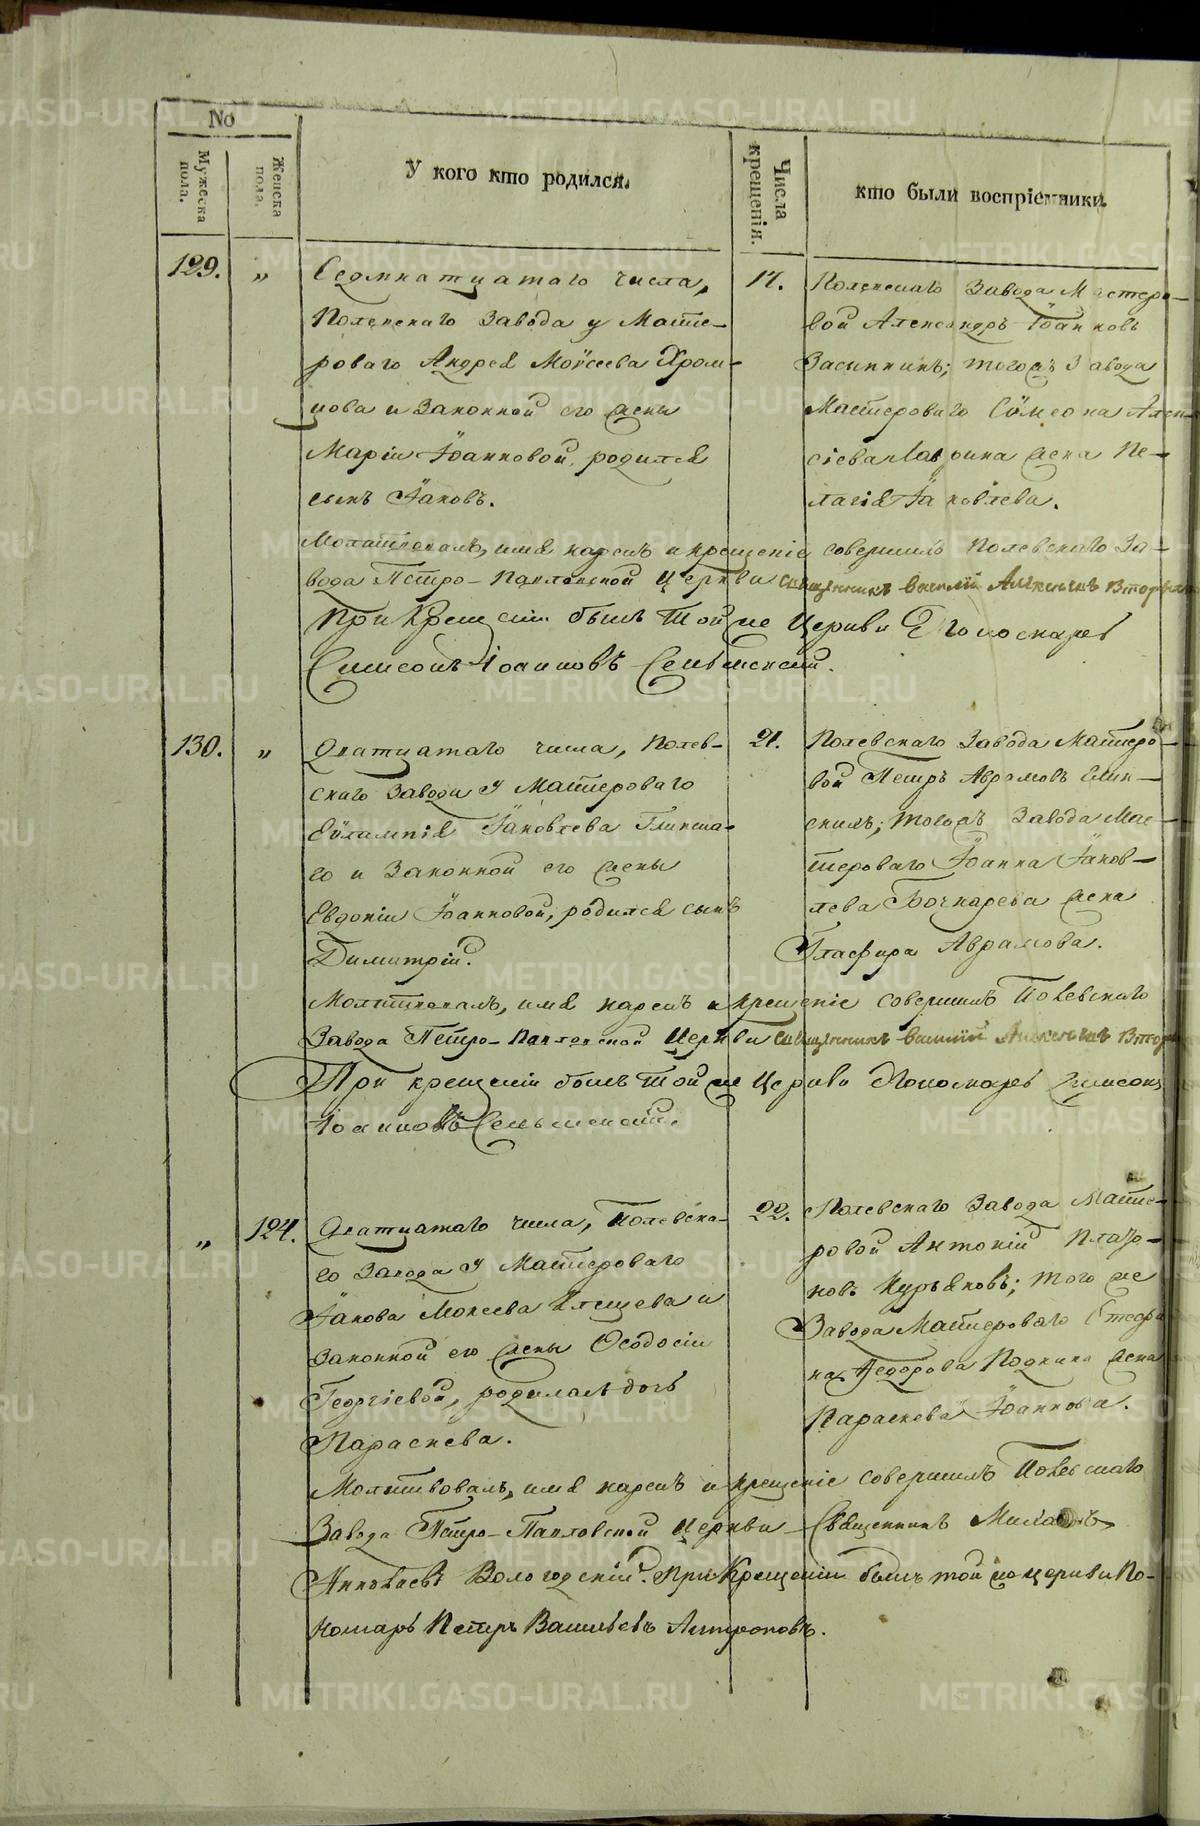 No
Мужеска пола.
Женска пола.
У кого кто родился.
Числа крещенія.
кто были воспріемники.
129.
"
Седмнатцатаго числа,
Полевскаго Завода у Масте-
роваго Андрея Моисеева Хром-
цова и Законной его жены
Маріи Іоанновой, родился
сынъ Іаковъ.
17.
Полевскаго Завода Мастеро-
вой Александръ Іоанновъ
Засыпкинъ; тогожъ Завода
Мастероваго Симеона Алек-
сіева жена Пе-
лагія Іаковлева.
Молитвовалъ, имя нарекъ и крещеніе совершилъ Полевскаго За-
вода Петро-Павловской Церкви священникъ Василій
При Крещеніи былъ той же Церкви Пономарь
Симеонъ Іоанновъ
130.
"
Дватцатаго числа, Полев-
скаго Завода у Мастероваго
Евлампія Іаковлева Глинска-
го и Законной его жены
Евдокіи Іоанновой, родился сынъ
Димитрій.
21.
Полевскаго Завода Мастеро-
вой Петръ Аврамовъ Глин-
скихъ; тогожъ Завода Мас-
тероваго Іоанна Іаков-
лева Бочкарева жена
Глафира Аврамова.
Молитвовалъ, имя нарекъ и крещеніе совершилъ Полевскаго
Завода Петро-Павловской Церкви священникъ Василій
При крещеніи былъ той же Церкви Пономарь Симеонъ
Іоанновъ
"
124.
Дватцатаго числа, Полевска-
го Завода у Мастероваго
Іакова Мокеева Клещева и
Законной его жены Ѳеодосіи
Георгіевой, родилась дочь
Параскева.
22.
Полевскаго Завода Масте-
ровой Антоній Плато-
новъ Курьяковъ; того же
Завода Мастероваго Стефа
на Ѳедорова жена
Параскева Іоаннова.
Молитвовалъ, имя нарекъ и крещеніе совершилъ Полевскаго
Завода Петро-Павловской Церкви Священникъ
Вологодскій. При Крещеніи былъ той же церкви По-
номарь Петръ Васильевъ Антроповъ.
METRIKI.GASO-URAL.RU